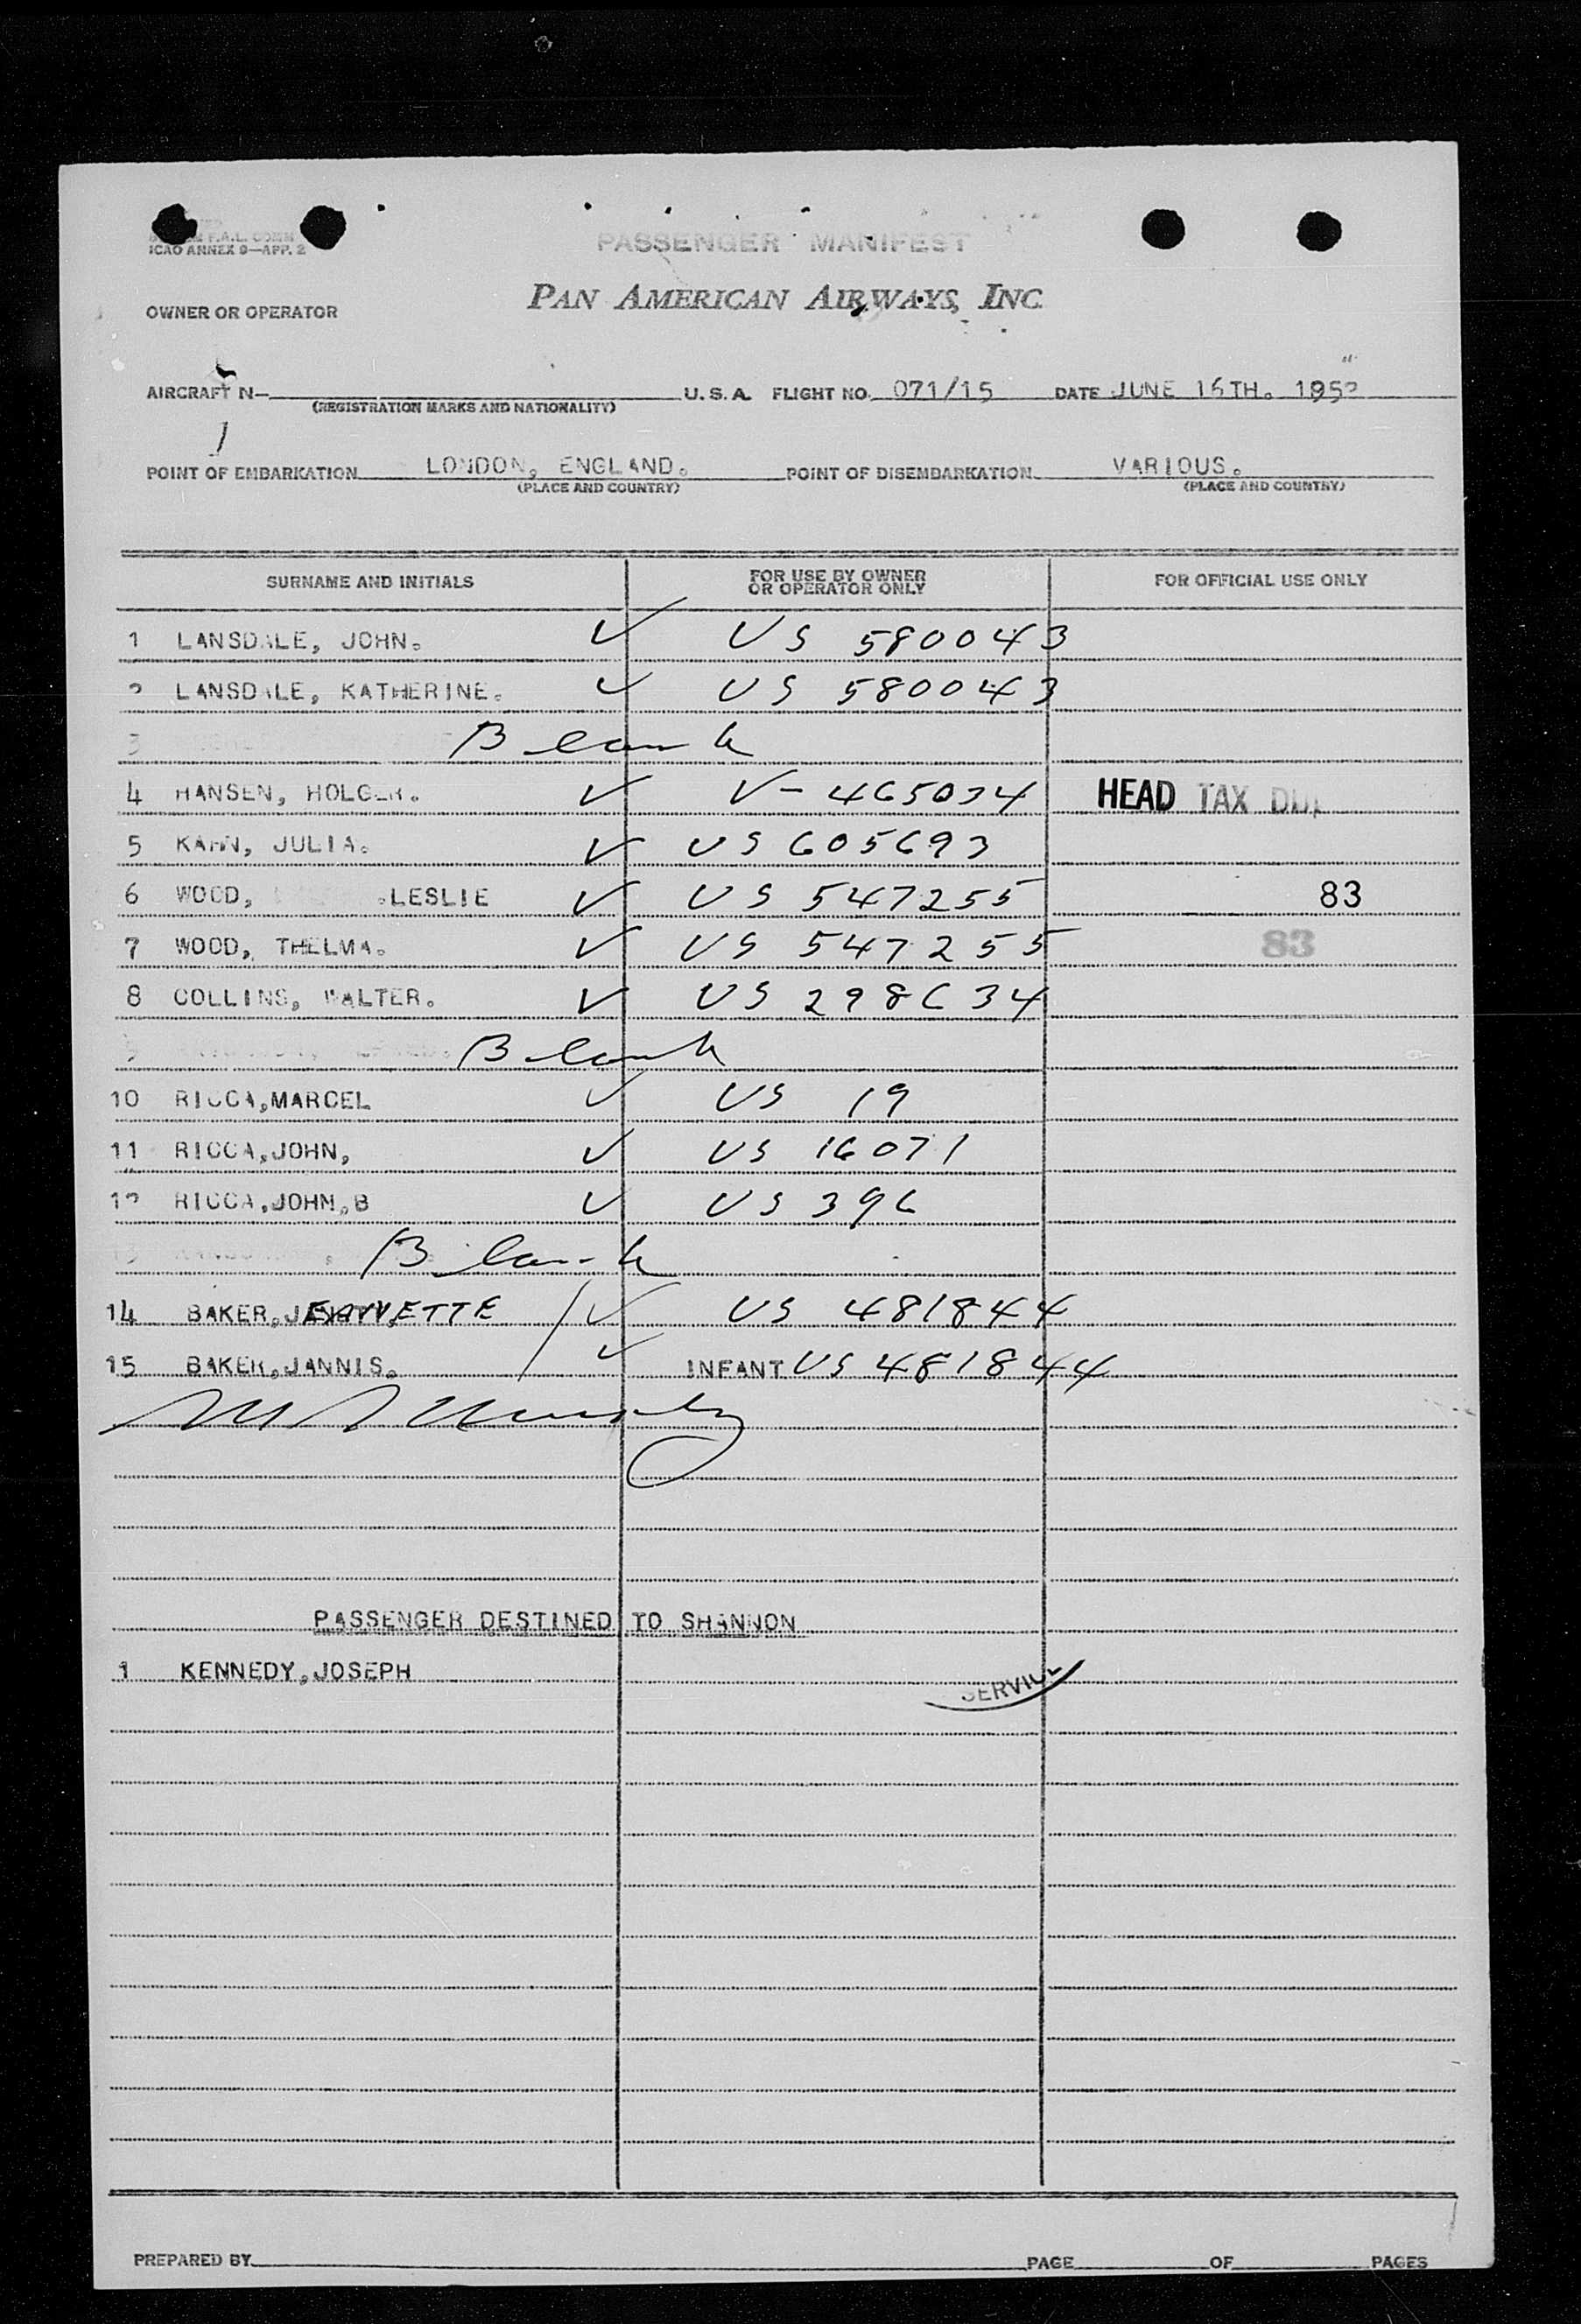 F.A.L. COMM
ICAO ANNEX 9—APP. 2
PASSENGER MANIFEST
OWNER OR OPERATOR
PAN AMERICAN AIRWAYS, INC.
AIRCRAFT N— U.S.A. FLIGHT NO. 071/15 DATE JUNE 16TH. 1952
(REGISTRATION MARKS AND NATIONALITY)
POINT OF EMBARKATION LONDON, ENGLAND. POINT OF DISEMBARKATION VARIOUS.
(PLACE AND COUNTRY) (PLACE AND COUNTRY)
SURNAME AND INITIALS FOR USE BY OWNER OR OPERATOR ONLY FOR OFFICIAL USE ONLY
1 LANSDALE, JOHN. ✓ US 580043
2 LANSDALE, KATHERINE. ✓ US 580043
3 Blank
4 HANSEN, HOLGER. ✓ V-465034 HEAD TAX DUE
5 KAHN, JULIA. ✓ US 605693
6 WOOD, LESLIE ✓ US 547255 83
7 WOOD, THELMA. ✓ US 547255 83
8 COLLINS, WALTER. ✓ US 298634
9 Blank
10 RICCA,MARCEL ✓ US 19
11 RICCA,JOHN, ✓ US 16071
12 RICCA,JOHN,B ✓ US 396
13 Blank
14 BAKER,JEANNETTE ✓ US 481844
15 BAKER,JANNIS, ✓ INFANT US 481844
PASSENGER DESTINED TO SHANNON
1 KENNEDY,JOSEPH
SERVICE
PREPARED BY PAGE OF PAGES